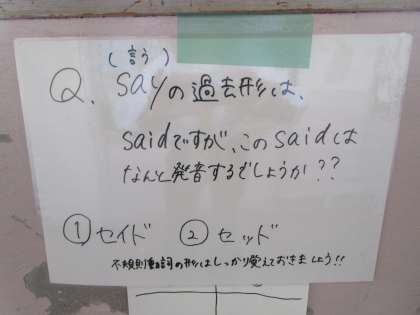 (言う)
Q. sayの過去形は、
saidですが、このsaidは
なんと発音するでしょうか??
① セイド ② セッド
不規則動詞の形はしっかり覚えておきましょう!!